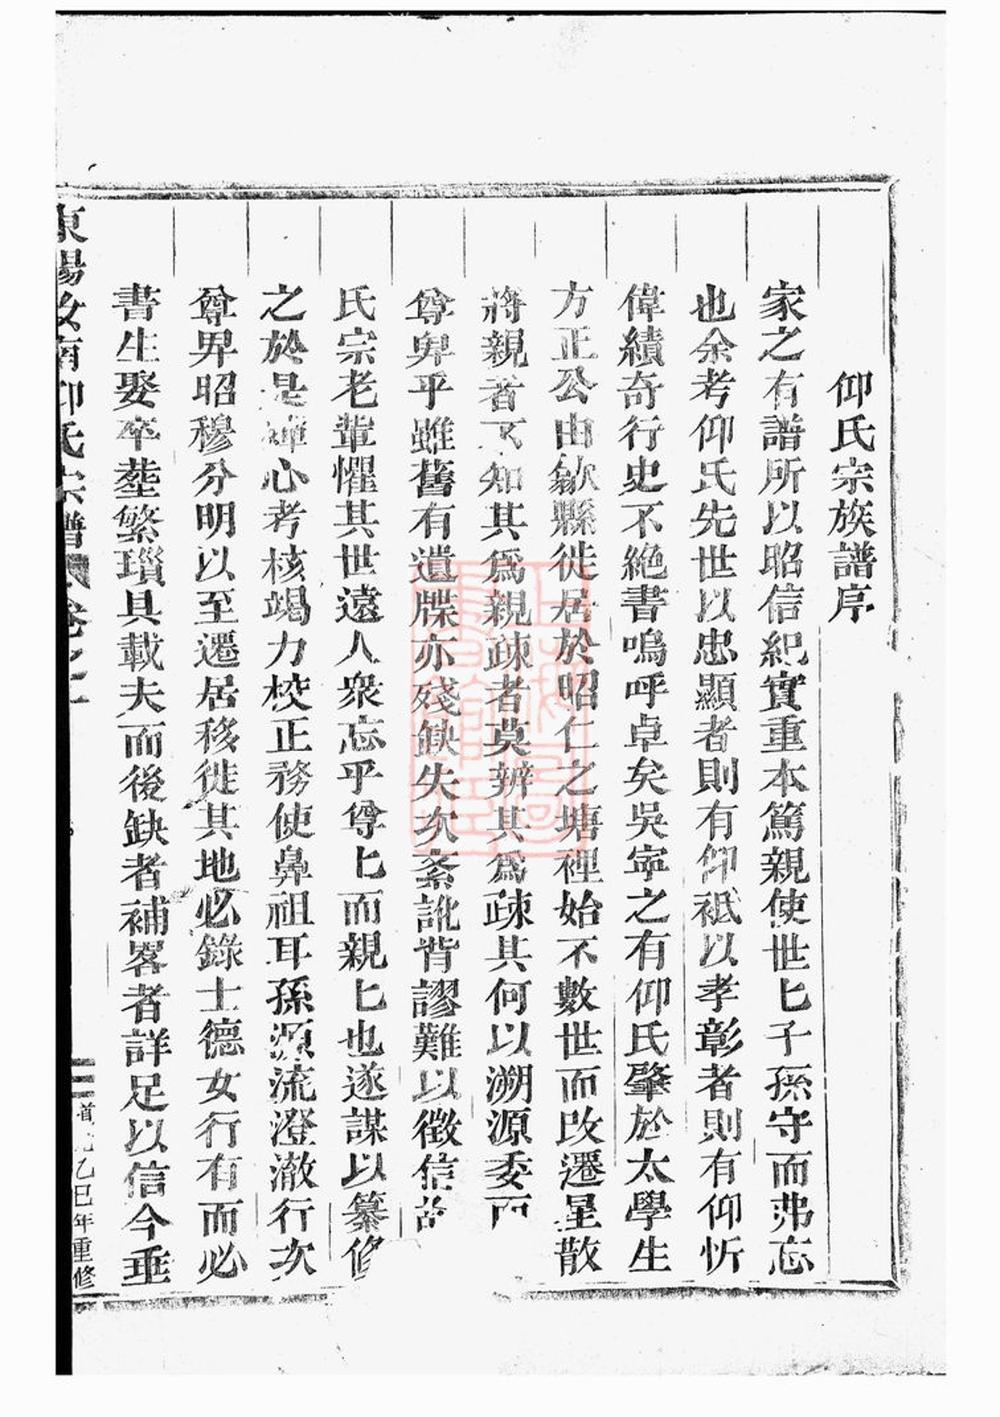 仰氏宗族譜序
家之有譜所以昭信紀實重本篤親使世匕子孫守而弗忘
也余考仰氏先世以忠顯者則有仰衹以孝彰者則有仰忻
偉績奇行史不絶書嗚呼卓矣吳寧之有仰氏肇於太學生
方正公由歙縣徙居於昭仁之塘裡始不數世而改遷星散
將親者不知其爲親疎者莫辨其爲疎其何以溯源委而
尊卑乎雖舊有遺牒亦殘缺失次紊訛背謬難以徵信
氏宗老輩懼其世遠人衆忘乎尊匕而親匕也遂謀以纂修
之於是殫心考核竭力校正務使鼻祖耳孫源流澄澈行次
尊畀昭穆分明以至遷居移徙其地必錄士德女行有而必
書生娶卒塟繁瑣具載夫而後缺者補畧者詳足以信今垂
東陽汝南仰氏宗譜 卷之一
乙巳年重修